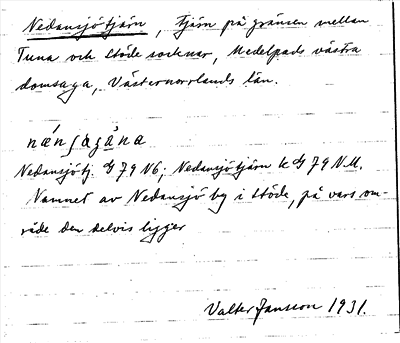 Nedansjötjärn, tjärn på gränsen mellan
Tuna och Stöde socknar, Medelpads västra
domsaga, Västernorrlands län.
Nedansjötj. G 79 V6; Nedansjötjärn k G 79 N.M.
Namnet av Nedansjö by i Stöde, på vars om-
råde den delvis ligger
Valter Jansson 1931.